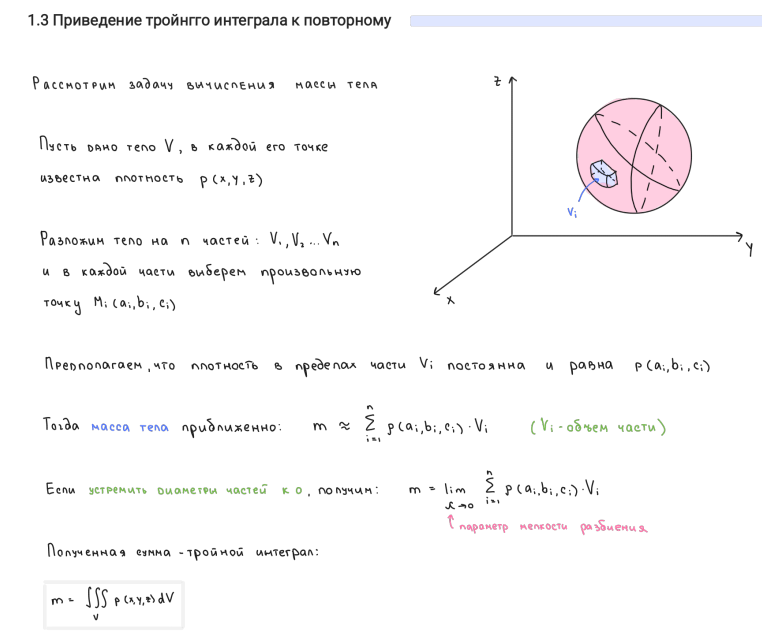 1.3 Приведение тройнгго интеграла к повторному
Рассмотрим задачу вычисления массы тела
Пусть дано тело V, в каждой его точке
известна плотность ρ(x,y,z)
Разложим тело на n частей: V₁,V₂...Vₙ
и в каждой части выберем произвольную
точку Mᵢ(aᵢ,bᵢ,cᵢ)
z
Vᵢ
y
x
Предполагаем, что плотность в пределах части Vᵢ постоянна и равна ρ(aᵢ,bᵢ,cᵢ)
Тогда масса тела приближенно: m ≈ ∑ᵢ₌₁ⁿ ρ(aᵢ,bᵢ,cᵢ)·Vᵢ (Vᵢ - объем части)
Если устремить диаметры частей к 0, получим: m = lim λ→0 ∑ᵢ₌₁ⁿ ρ(aᵢ,bᵢ,cᵢ)·Vᵢ
↑ параметр мелкости разбиения
Полученная сумма - тройной интеграл:
m = ∭ ρ(x,y,z)dV
V